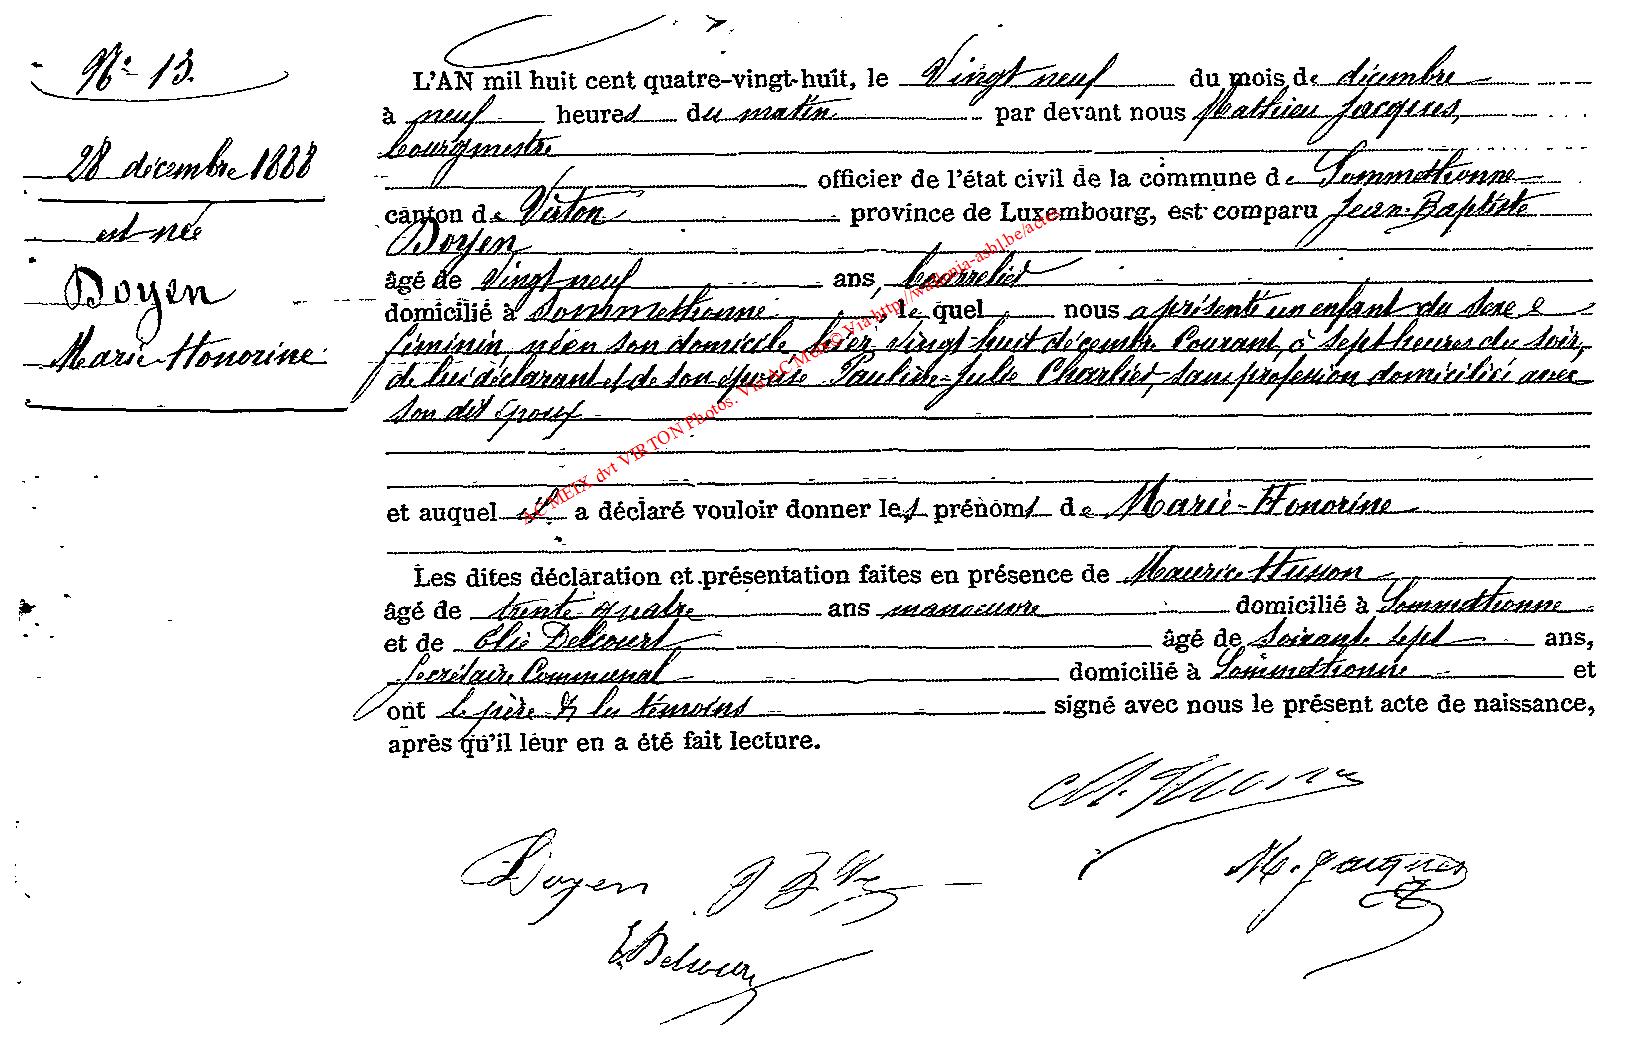 N° 13.
28 décembre 1888
est née
Doyen
Marie-Honorine
L'AN mil huit cent quatre-vingt-huit, le Vingt neuf du mois de décembre
à neuf heures du matin par devant nous Mathieu Jacques,
bourgmestre
officier de l'état civil de la commune de Sommethonne
canton de Virton province de Luxembourg, est comparu Jean-Baptiste
Doyen
âgé de vingt neuf ans, bourrelier
domicilié à Sommethonne, lequel nous a présenté un enfant du sexe
féminin, né en son domicile hier, vingt-huit décembre Courant, à sept heures du soir,
de lui déclarant et de son épouse Pauline-Julie Charlier, sans profession domiciliée avec
son dit époux
et auquel il a déclaré vouloir donner les prénoms de Marie-Honorine
Les dites déclaration et présentation faites en présence de Maurice Husson
âgé de trente quatre ans manoeuvre domicilié à Sommethonne
et de Elie Delcourt âgé de soixante sept ans,
Secrétaire Communal domicilié à Sommethonne et
ont le père & les témoins signé avec nous le présent acte de naissance,
après qu'il leur en a été fait lecture.
Doyen J B
M. Jacques
E. Delcourt
AC MEIX dvt VIRTON Photos. Via AC Via http://wallonia-asbl.be/actes